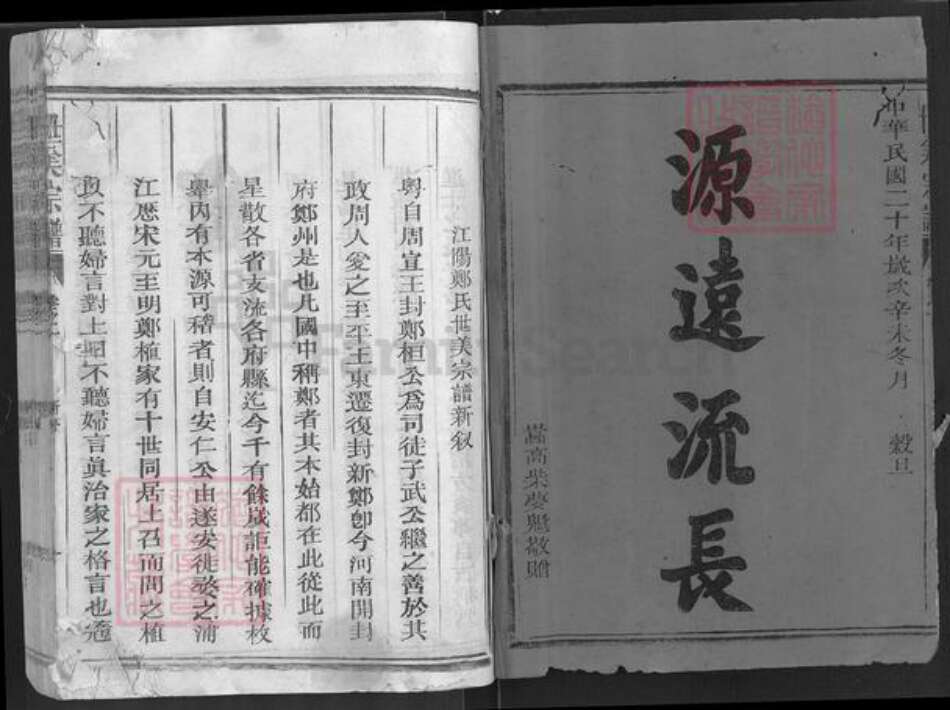 中華民國二十年歲次辛未冬月 穀旦
源遠流長
嵩高柴夢魁敬贈
江陽鄭氏世美宗譜新叙
粵自周宣王封鄭桓公爲司徒子武公繼之善於其
政周人愛之至平王東遷復封新鄭卽今河南開封
府鄭州是也凡國中稱鄭者其本始都在此從此而
星散各省支流各府縣迄今千有餘歲詎能確據枚
舉內有本源可稽者則自安仁公由遂安徙婺之浦
江歷宋元至明鄭植家有十世同居上召而問之植
以不聽婦言對上曰不聽婦言眞治家之格言也適